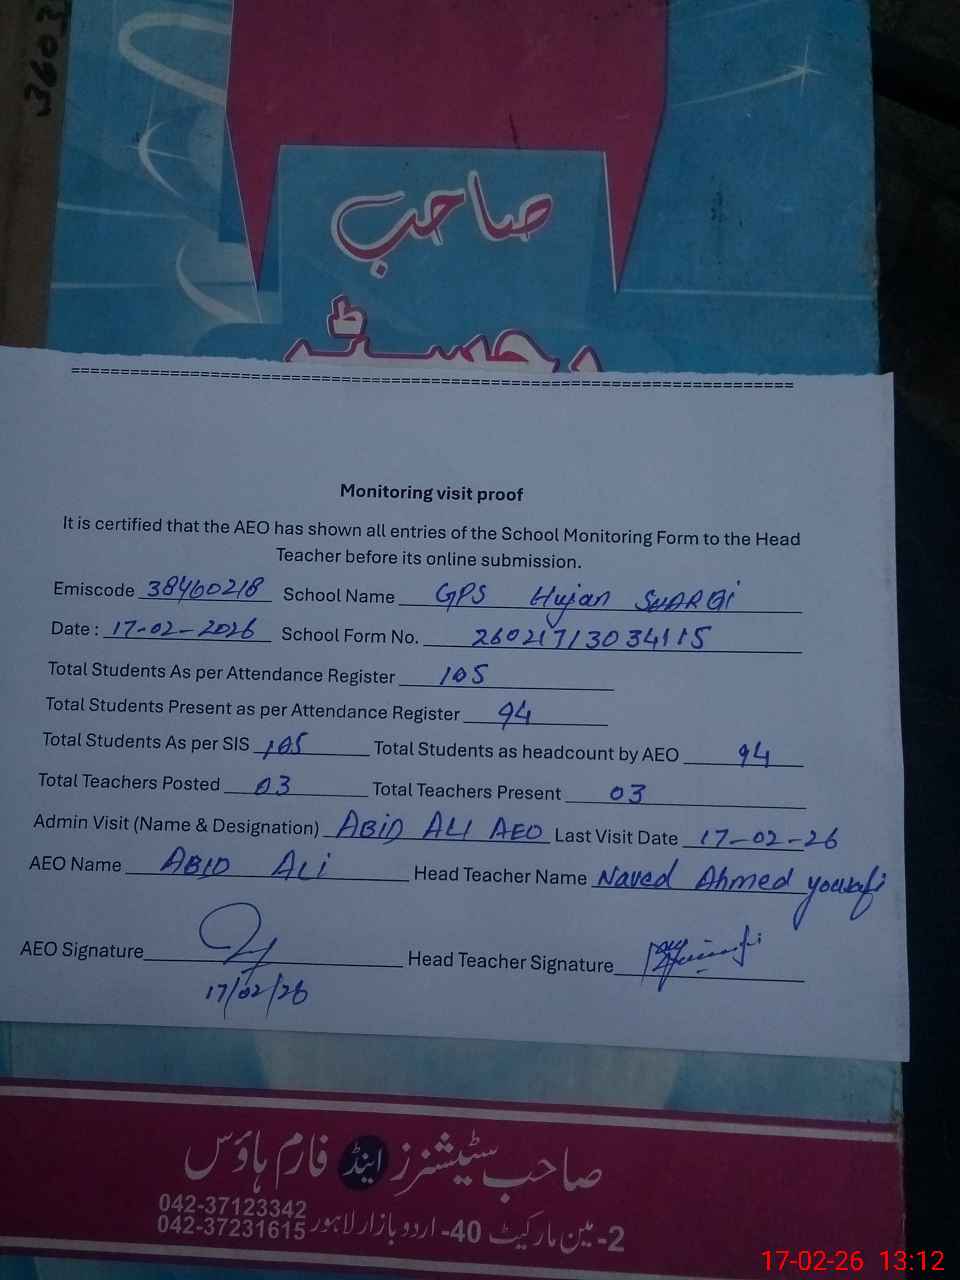 3603
صاحب
رجسٹر
Monitoring visit proof
It is certified that the AEO has shown all entries of the School Monitoring Form to the Head
Teacher before its online submission.
Emiscode 38460218 School Name GPS Hujan SHARQi
Date : 17-02-2026 School Form No. 26021713034115
Total Students As per Attendance Register 105
Total Students Present as per Attendance Register 94
Total Students As per SIS 105 Total Students as headcount by AEO 94
Total Teachers Posted 03 Total Teachers Present 03
Admin Visit (Name & Designation) ABID ALI AEO Last Visit Date 17-02-26
AEO Name ABID ALi Head Teacher Name Naved Ahmed yousafi
AEO Signature Head Teacher Signature
17/02/26
صاحب سٹیشنرز اینڈ فارم ہاؤس
042-37123342
042-37231615 2-مین مارکیٹ 40-اردو بازار لاہور
17-02-26 13:12